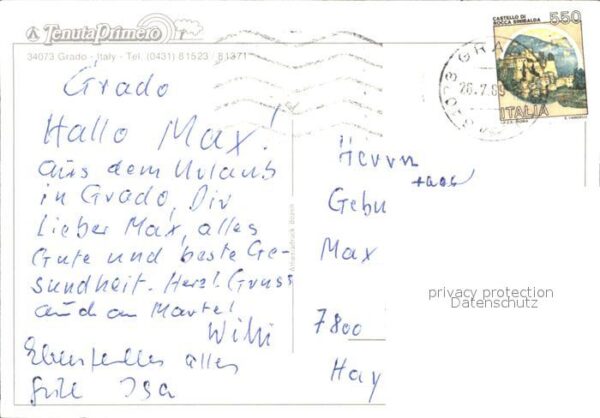 TenutaPrimero
34073 Grado - Italy - Tel. (0431) 81523 - 81371
CASTELLO DI
ROCCA SINIBALDA
550
ITALIA
GRADO
26.7.
Grado
Hallo Max!
aus dem Urlaub
in Grado, Dir
lieber Max, alles
Gute und beste Ge-
sundheit. Herzl. Gruss
auch an Martel
Willi
Ebenfalls alles
gute Isa
Herrn
Gebu
Max
7800
Hay
privacy protection
Datenschutz